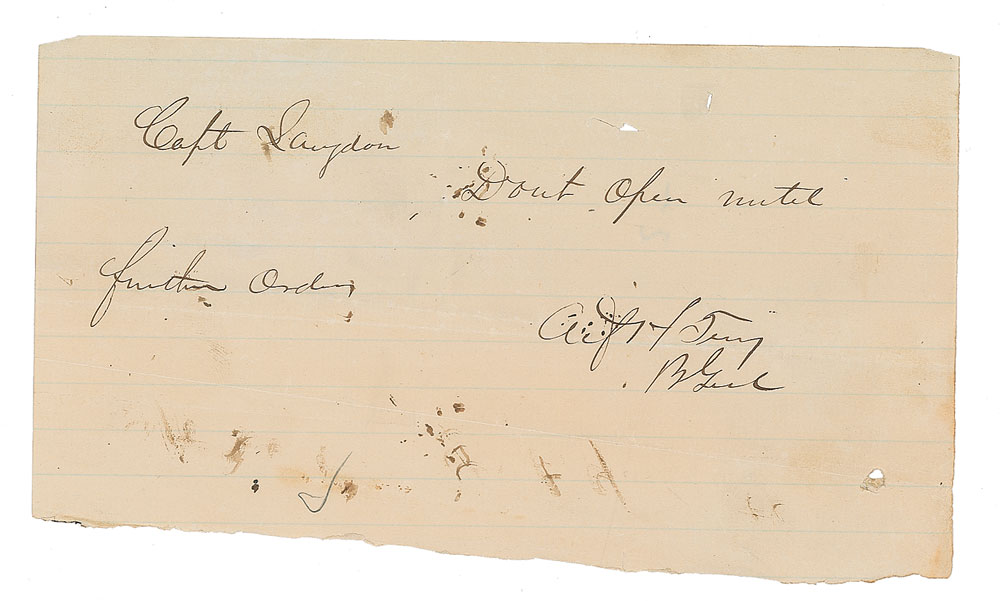 Capt Langdon
Dont Open until
further Orders
Alf H Terry
B Genl